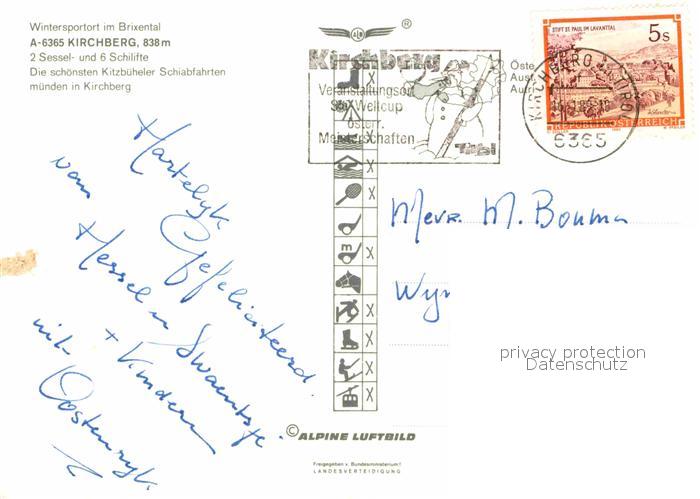 Wintersportort im Brixental
A-6365 KIRCHBERG, 838m
2 Sessel- und 6 Schilifte
Die schönsten Kitzbüheler Schiabfahrten
münden in Kirchberg
®
Kirchberg
Veranstaltungsort
Ski Weltcup
österr.
Meisterschaften
Tirol
Öste
Aust
Autri
STIFT ST. PAUL IM LAVANTTAL
5s
REPUBLIK ÖSTERREICH
6365
Hartelyk
Gefeliciteerd.
van
Hessel en Swaentje
+ Kinderen
uit
Oostenryk.
Mevr. M. Bouma
Wijn
m
privacy protection
Datenschutz
© ALPINE LUFTBILD
Freigegeben v. Bundesministerium f.
LANDESVERTEIDIGUNG